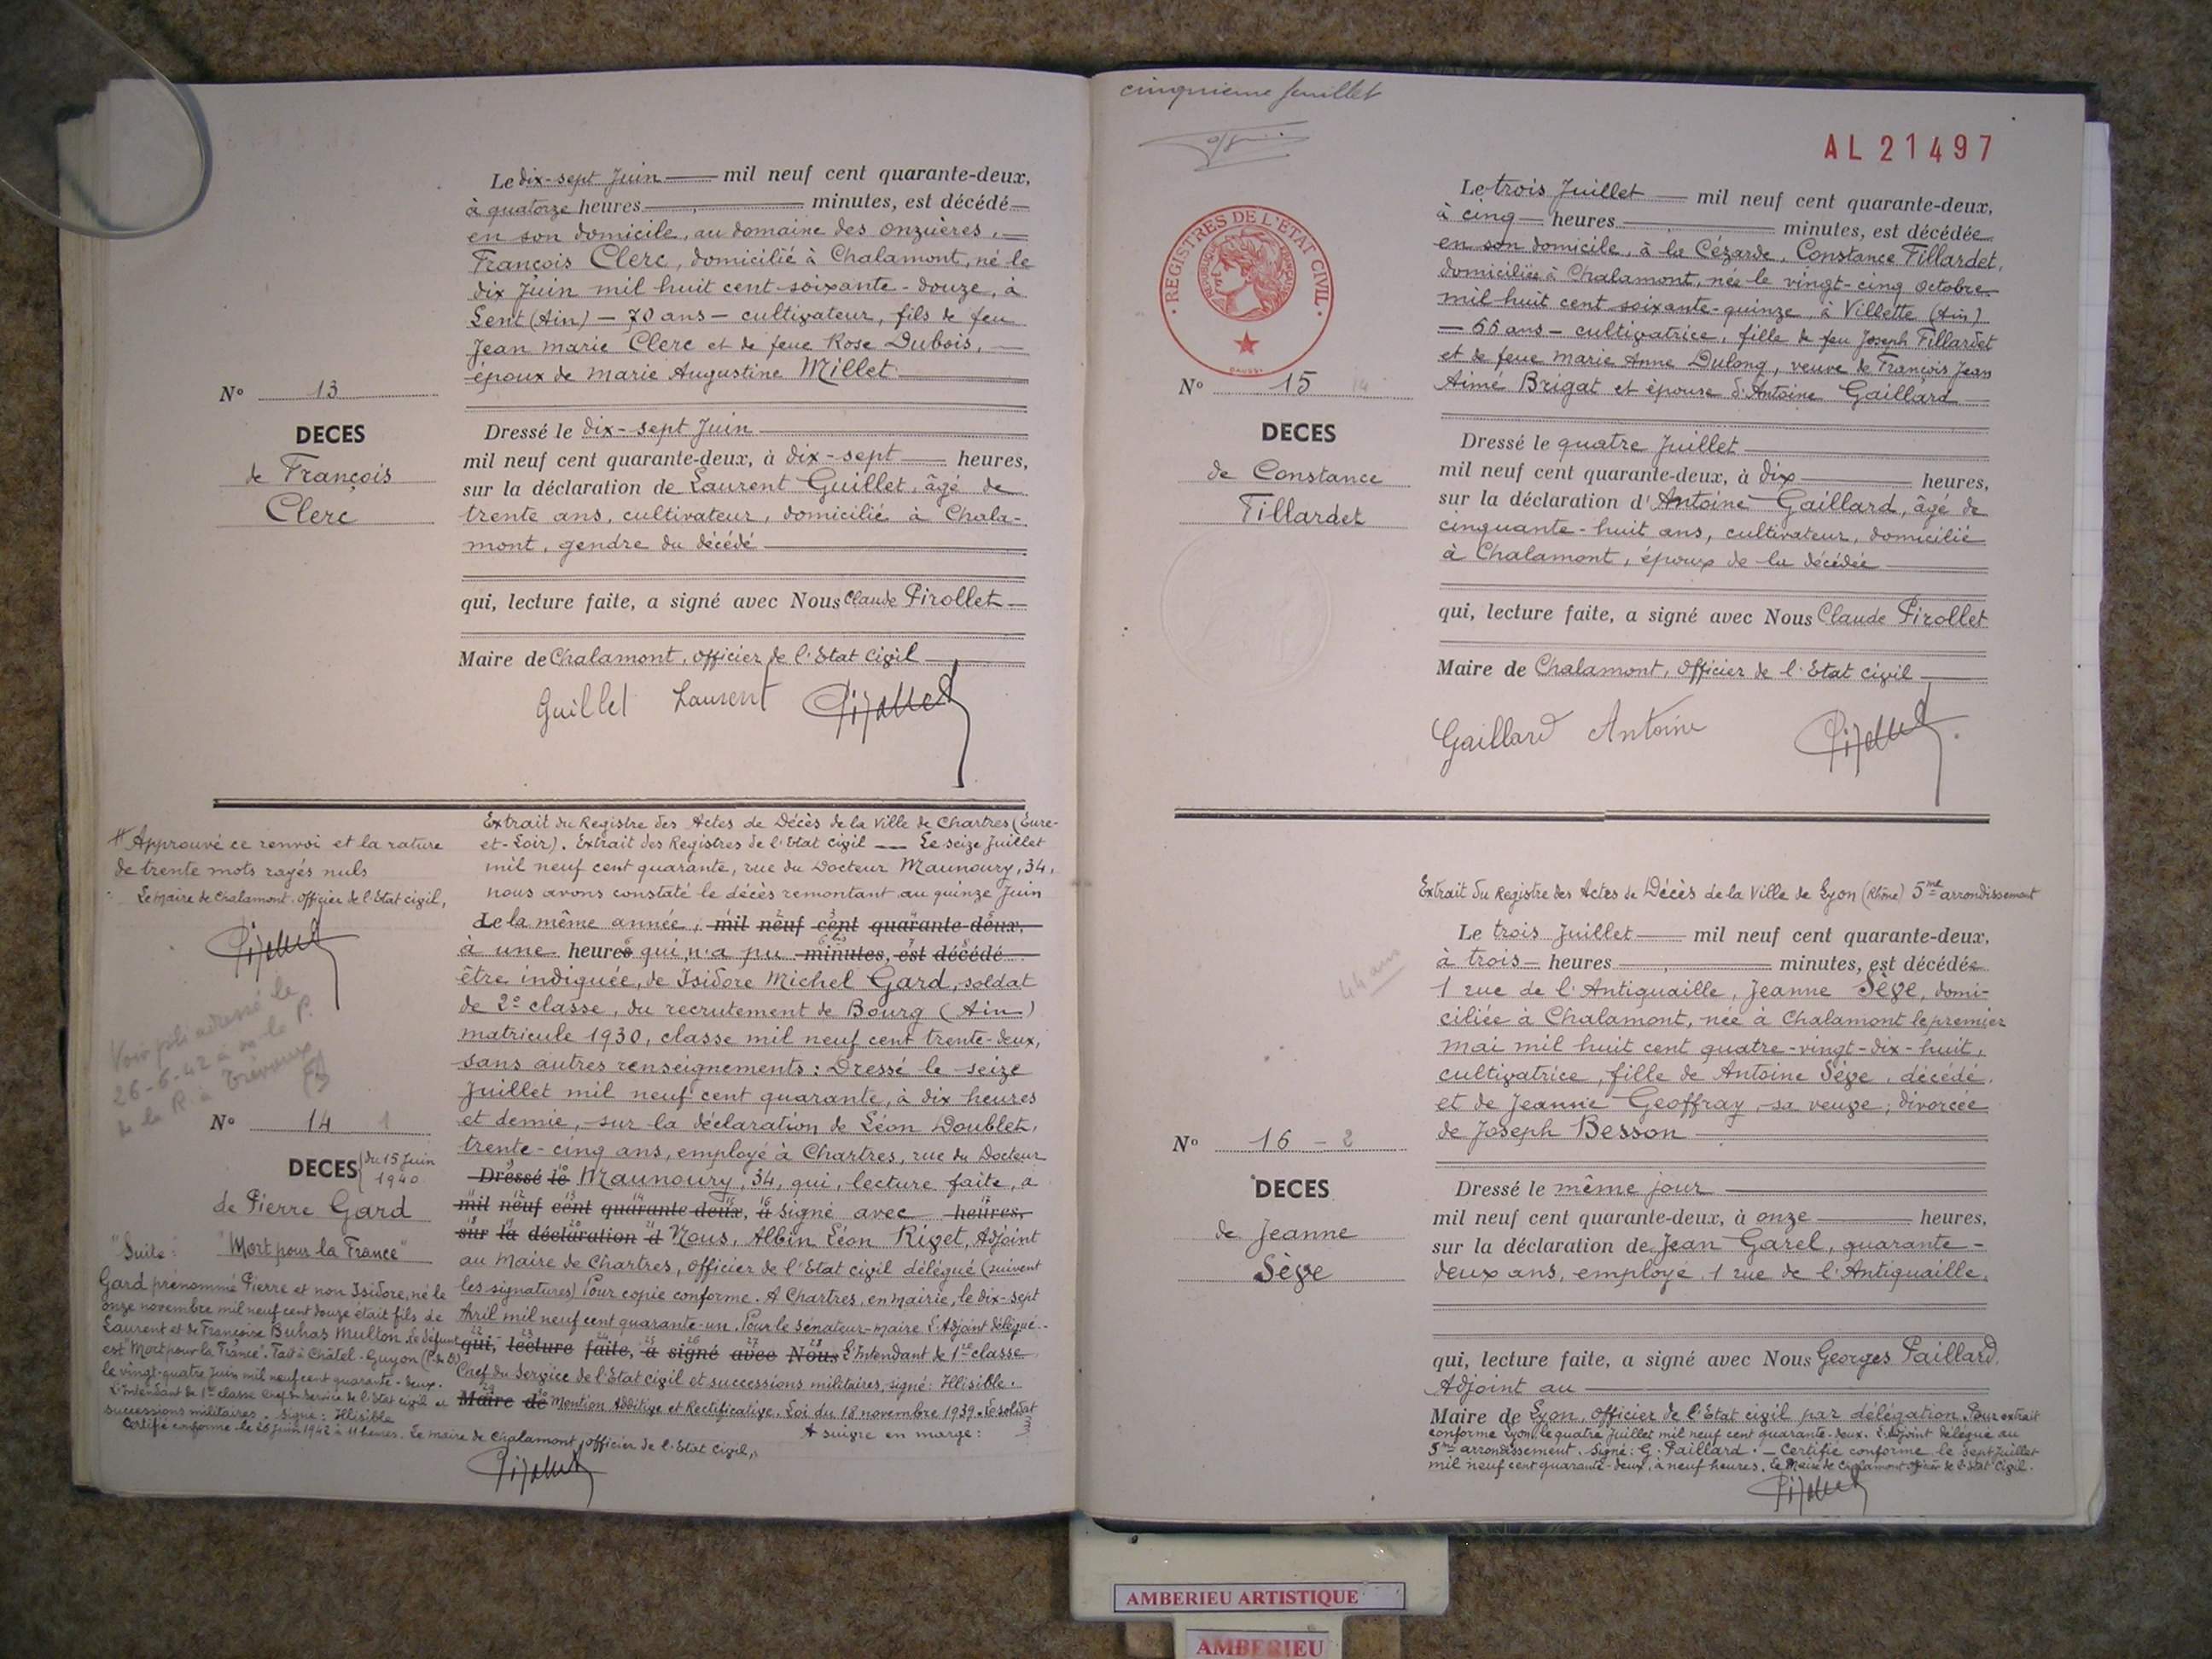 Le dix-sept Juin mil neuf cent quarante-deux,
à quatorze heures minutes, est décédé
en son domicile, au domaine des Onzuères,
François Clerc, domicilié à Chalamont, né le
dix Juin mil huit cent soixante-douze, à
Lent (Ain) - 70 ans - cultivateur, fils de feu
Jean Marie Clerc et de feue Rose Dubois,
époux de Marie Augustine Millet
N° 13
DECES
de François
Clerc
Dressé le dix-sept Juin
mil neuf cent quarante-deux, à dix-sept heures,
sur la déclaration de Laurent Guillet, âgé de
trente ans, cultivateur, domicilié à Chala-
mont, gendre du décédé
qui, lecture faite, a signé avec Nous Claude Pirollet
Maire de Chalamont, Officier de l'Etat Civil
Guillet Laurent Pirollet
# Approuvé ce renvoi et la rature
de trente mots rayés nuls
Le Maire de Chalamont, Officier de l'Etat civil,
Pirollet
Voir pli adressé le
26-6-42 à M. le P.
de la R. à Trévoux
N° 14 1
DECES du 15 Juin
1940
de Pierre Gard
"Mort pour la France"
"Suite:
Gard prénommé Pierre et non Isidore, né le
onze novembre mil neuf cent douze était fils de
Laurent et de Françoise Buhas Multon. Le défunt
est "Mort pour la France". Fait à Châtel-Guyon (P. de D)
le vingt-quatre Juin mil neuf cent quarante-deux.
L'Intendant de 1re classe Chef du Service de l'Etat civil et
successions militaires. Signé: Illisible
Certifié conforme le 26 Juin 1942 à 11 heures. Le Maire de Chalamont, officier de l'Etat Civil,
Pirollet
Extrait du Registre des Actes de Décès de la Ville de Chartres (Eure-
et-Loir). Extrait des Registres de l'Etat Civil — Le seize Juillet
mil neuf cent quarante, rue du Docteur Maunoury, 34,
nous avons constaté le décès remontant au quinze Juin
de la même année, mil neuf cent quarante-deux,
à une heures qui n'a pu minutes, est décédé
être indiquée, de Isidore Michel Gard, soldat
de 2e classe, du recrutement de Bourg (Ain)
matricule 1930, classe mil neuf cent trente-deux,
sans autres renseignements: Dressé le seize
Juillet mil neuf cent quarante, à dix heures
et demie, sur la déclaration de Léon Doublet,
trente-cinq ans, employé à Chartres, rue du Docteur
Dressé le Maunoury, 34, qui, lecture faite, a
mil neuf cent quarante-deux, à signé avec heures,
sur la déclaration d Nous, Albin Léon Rivet, Adjoint
au Maire de Chartres, Officier de l'Etat Civil délégué (suivent
les signatures) Pour copie conforme. A Chartres, en mairie, le dix-sept
Avril mil neuf cent quarante-un. Pour le Sénateur-Maire L'Adjoint délégué.
qui, lecture faite, a signé avec Nous L'Intendant de 1re classe
Chef du Service de l'Etat civil et successions militaires, signé: Illisible.
Maire de Mention Additive et Rectificative. Loi du 18 novembre 1939. Le soldat
A suivre en marge:
cinquième feuillet
AL 21497
REGISTRES DE L'ETAT CIVIL
REPUBLIQUE FRANCAISE
Le trois Juillet mil neuf cent quarante-deux,
à cinq heures minutes, est décédée
en son domicile, à la Cézarde, Constance Tillardet,
domiciliée à Chalamont, née le vingt-cinq Octobre
mil huit cent soixante-quinze, à Villette (Ain)
- 66 ans - cultivatrice, fille de feu Joseph Tillardet
et de feue Marie Anne Dulong, veuve de François Jean
Aimé Brigat et épouse d'Antoine Gaillard
N° 15
DECES
de Constance
Tillardet
Dressé le quatre Juillet
mil neuf cent quarante-deux, à dix heures,
sur la déclaration d'Antoine Gaillard, âgé de
cinquante-huit ans, cultivateur, domicilié
à Chalamont, époux de la décédée
qui, lecture faite, a signé avec Nous Claude Pirollet
Maire de Chalamont, Officier de l'Etat Civil
Gaillard Antoine Pirollet
Extrait du Registre des Actes de Décès de la Ville de Lyon (Rhône) 5me arrondissement
Le trois Juillet mil neuf cent quarante-deux,
à trois heures minutes, est décédée
1 rue de l'Antiquaille, Jeanne Sève, domi-
ciliée à Chalamont, née à Chalamont le premier
mai mil huit cent quatre-vingt-dix-huit,
cultivatrice, fille de Antoine Sève, décédé,
et de Jeanne Geoffray, sa veuve; divorcée
de Joseph Besson
44 ans
N° 16 - 2
DECES
de Jeanne
Sève
Dressé le même jour
mil neuf cent quarante-deux, à onze heures,
sur la déclaration de Jean Garel, quarante-
deux ans, employé, 1 rue de l'Antiquaille,
qui, lecture faite, a signé avec Nous Georges Paillard,
Adjoint au
Maire de Lyon, Officier de l'Etat civil par délégation. Pour extrait
conforme Lyon, le quatre Juillet mil neuf cent quarante-deux. L'Adjoint délégué au
5me arrondissement. Signé: G. Paillard. - Certifié conforme le sept Juillet
mil neuf cent quarante-deux, à neuf heures. Le Maire de Chalamont officier de l'Etat Civil.
Pirollet
AMBERIEU ARTISTIQUE
AMBERIEU